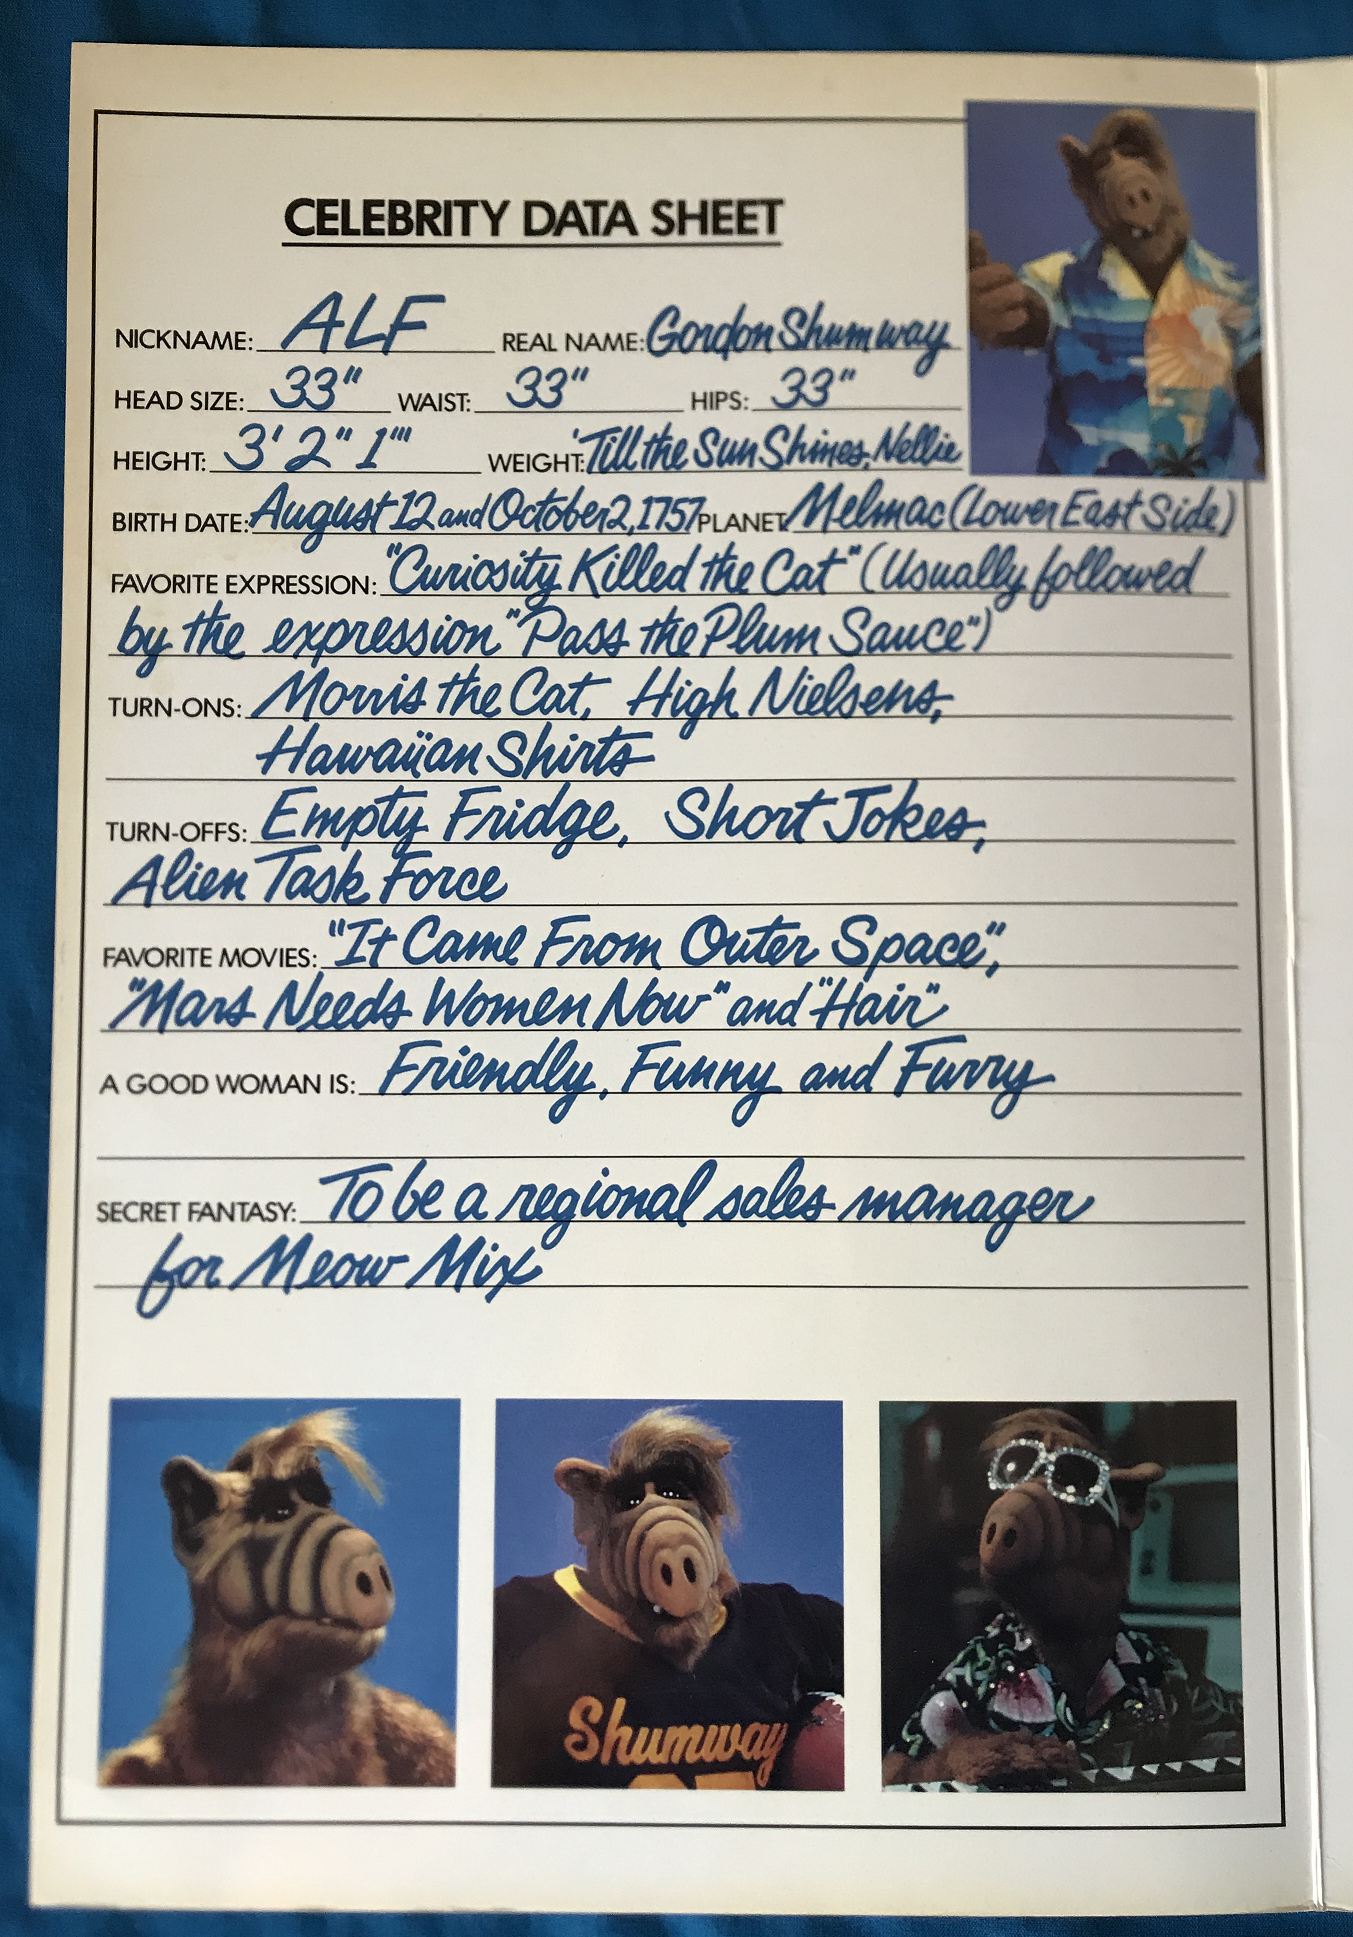 CELEBRITY DATA SHEET
NICKNAME: ALF REAL NAME: Gordon Shumway
HEAD SIZE: 33" WAIST: 33" HIPS: 33"
HEIGHT: 3' 2" 1''' WEIGHT: 'Till the Sun Shines, Nellie
BIRTH DATE: August 12 and October 2, 1757 PLANET Melmac (Lower East Side)
FAVORITE EXPRESSION: "Curiosity Killed the Cat" (Usually followed
by the expression "Pass the Plum Sauce")
TURN-ONS: Morris the Cat, High Nielsens,
Hawaiian Shirts
TURN-OFFS: Empty Fridge, Short Jokes,
Alien Task Force
FAVORITE MOVIES: "It Came From Outer Space",
"Mars Needs Women Now" and "Hair"
A GOOD WOMAN IS: Friendly, Funny and Furry
SECRET FANTASY: To be a regional sales manager
for Meow Mix
Shumway